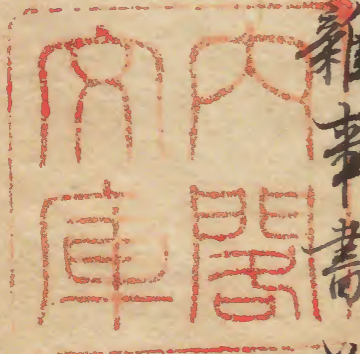 雜事書
内閣
文庫